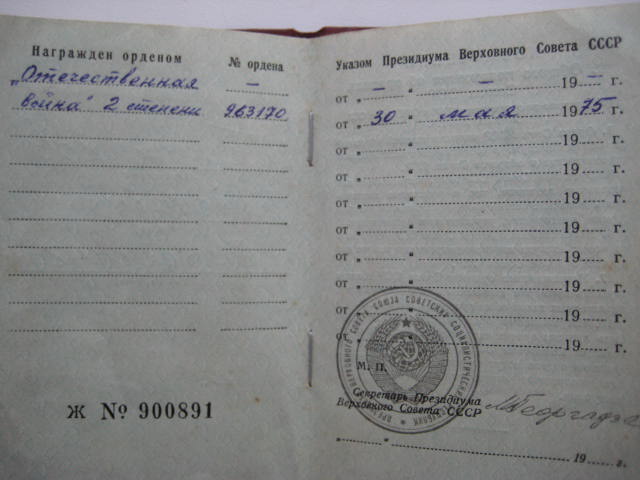 Награжден орденом
№ ордена
„Отечественная –
война" 2 степени 963170
Ж № 900891
Указом Президиума Верховного Совета СССР
от „ – “ – 19 – г.
от „ 30 “ мая 1975 г.
от „ “ 19 г.
от „ “ 19 г.
от „ “ 19 г.
от „ “ 19 г.
от „ “ 19 г.
от „ “ 19 г.
от „ “ 19 г.
от „ “ 19 г.
М. П.
Секретарь Президиума
Верховного Совета СССР
МГеоргадзе
„ “ 19 г.
ВЕРХОВНОГО СОВЕТА СОЮЗА СОВЕТСКИХ СОЦИАЛИСТИЧЕСКИХ